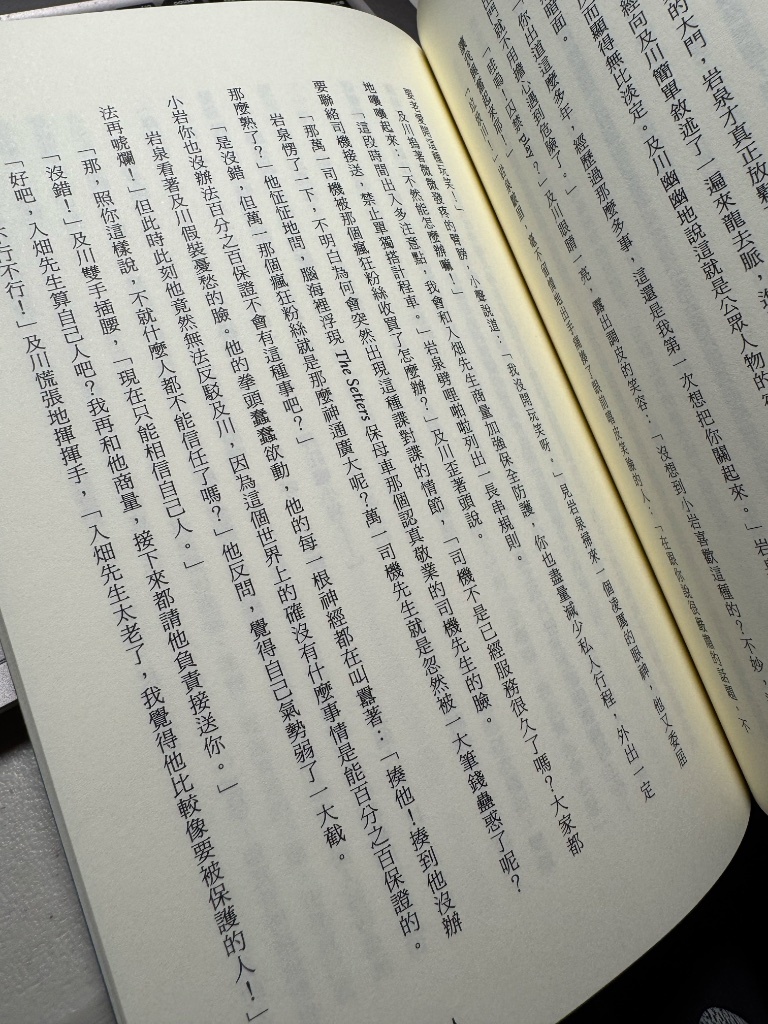 的大門，岩泉才真正放鬆
經向及川簡單敘述了一遍來龍去脈，進
而顯得無比淡定。及川幽幽地說這就是公眾人物的
暗面。
「你出道這麼多年，經歷過那麼多事，這還是我第一次想把你關起來。」岩
時就不用擔心遇到危險了。」
囚禁 play？」及川眼睛一亮，露出調皮的笑容：「沒想到小岩喜歡這種的？不妙，
興奮起來耶！」
「垃圾川！」岩泉翻眼，毫不留情地出手痛揍了眼前嘻皮笑臉的人：「在跟你說很嚴肅的話題，不
要老愛開這種玩笑！」
及川摀著微微發疼的臂膀，小聲說道：「我沒開玩笑呀。」見岩泉掃來一個凌厲的眼神，他又委屈
地嚷嚷起來：「不然能怎麼辦嘛！」
「這段時間出入多注意點，我會和入畑先生商量加強保全防護，你也盡量減少私人行程，外出一定
要聯絡司機接送，禁止單獨搭計程車。」岩泉劈哩啪啦列出一長串規則。
「那萬一司機被那個瘋狂粉絲收買了怎麼辦？」及川歪著頭說。
岩泉愣了一下，不明白為何會突然出現這種諜對諜的情節，「司機不是已經服務很久了嗎？大家都
那麼熟了？」他怔怔地問，腦海裡浮現 The Setters 保母車那個認真敬業的司機先生的臉。
「是沒錯，但萬一那個瘋狂粉絲就是那麼神通廣大呢？萬一司機先生就是忽然被一大筆錢蠱惑了呢？
小岩你也沒辦法百分之百保證不會有這種事吧？」
岩泉看著及川假裝憂愁的臉。他的拳頭蠢蠢欲動，他的每一根神經都在叫囂著：「揍他！揍到他沒辦
法再嘵爛！」但此時此刻他竟然無法反駁及川，因為這個世界上的確沒有什麼事情是能百分之百保證的。
「那，照你這樣說，不就什麼人都不能信任了嗎？」他反問，覺得自己氣勢弱了一大截。
「沒錯！」及川雙手插腰，「現在只能相信自己人。」
「好吧，入畑先生算自己人吧？我再和他商量，接下來都請他負責接送你。」
不行不行！」及川慌張地揮揮手，「入畑先生太老了，我覺得他比較像要被保護的人！」